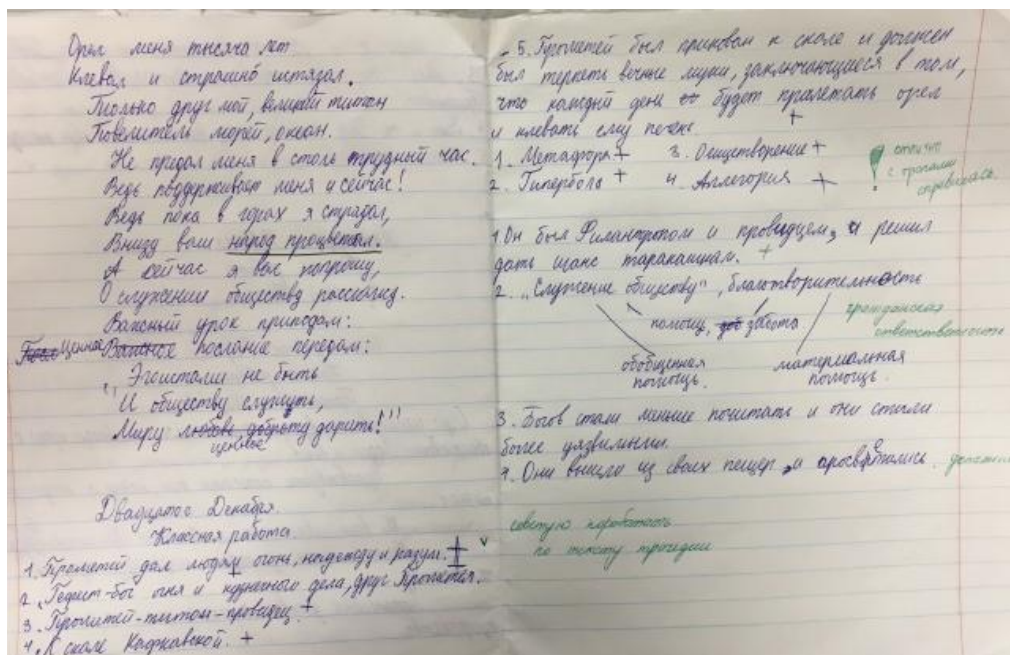 Орел меня тысяча лет
Клевал и страшно истязал.
Только друг мой, великий титан
Повелитель морей, океан.
Не придал меня в столь трудный час.
Ведь поддерживает меня и сейчас!
Ведь пока в горах я страдал,
Внизу ваш народ процветал.
А сейчас я вас попрошу,
О служении обществу расскажу.
Важный урок приподам:
Ценное послание передам:
"Эгоистами не быть
И обществу служить,
Миру ценное дарить!"
Двадцатое Декабря.
Классная работа.
1. Прометей дал людям огонь, надежду и разум. +
2. Гефест-бог огня и кузнечного дела, друг Прометея. +
3. Прометей-титан-провидец. +
4. К скале Кавкавской. +
5. Прометей был прикован к скале и должен
был терпеть вечные муки, заключающиеся в том,
что каждый день будет пролетать орел
и клевать ему печень. +
1. Метафора + 3. Олицетворение +
2. Гипербола + 4. Аллегория +
! отлично
с тропами
справилась.
1. Он был Филантропом и провидцем, и решил
дать шанс тараканцам. +
2. "Служение обществу", благотворительность
помощь, забота
гражданская
ответственность
обобщенная
помощь.
материальная
помощь.
3. Богов стали меньше почитать и они стали
более уязвимыми.
4. Они вышли из своих пещер, и просветились.
советую поработать
по тексту трагедии